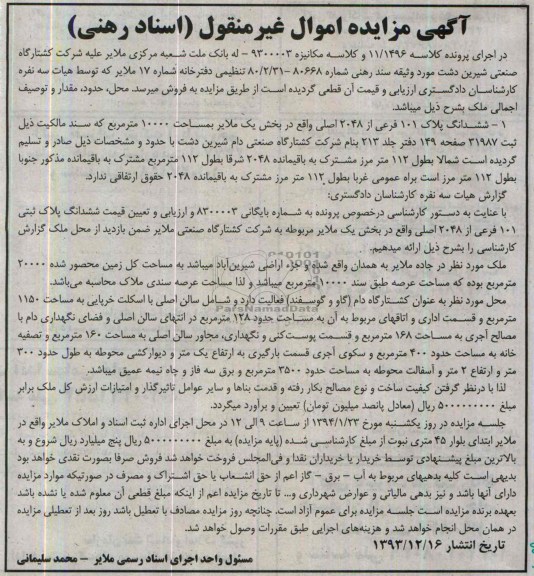 آگهی مزایده اموال غیرمنقول (اسناد رهنی)
در اجرای پرونده کلاسه ۱۱/۱۴۹۶ و کلاسه مکانیزه ۹۳۰۰۰۰۳ - له بانک ملت شعبه مرکزی ملایر علیه شرکت کشتارگاه
صنعتی شیرین دشت مورد وثیقه سند رهنی شماره ۸۰۶۶۸ - ۸۰/۲/۳۱ تنظیمی دفترخانه شماره ۱۷ ملایر که توسط هیات سه نفره
کارشناسان دادگستری ارزیابی و قیمت آن قطعی گردیده است از طریق مزایده به فروش میرسد. محل، حدود، مقدار و توصیف
اجمالی ملک بشرح ذیل میباشد.
۱ - ششدانگ پلاک ۱۰۱ فرعی از ۲۰۴۸ اصلی واقع در بخش یک ملایر بمساحت ۱۰۰۰۰ مترمربع که سند مالکیت ذیل
ثبت ۳۱۹۸۷ صفحه ۱۴۹ دفتر جلد ۲۱۳ بنام شرکت کشتارگاه صنعتی دام شیرین دشت با حدود و مشخصات ذیل صادر و تسلیم
گردیده است شمالا بطول ۱۱۲ متر مرز مشترک به باقیمانده ۲۰۴۸ شرقا بطول ۱۱۲ مترمربع مشترک به باقیمانده مذکور جنوبا
بطول ۱۱۲ متر مرز است براه عمومی غربا بطول ۱۱۲ متر مرز مشترک به باقیمانده ۲۰۴۸ حقوق ارتفاقی ندارد.
گزارش هیات سه نفره کارشناسان دادگستری:
با عنایت به دستور کارشناسی درخصوص پرونده به شماره بایگانی ۸۳۰۰۰۰۳ و ارزیابی و تعیین قیمت ششدانگ پلاک ثبتی
۱۰۱ فرعی از ۲۰۴۸ اصلی واقع در بخش یک ملایر مربوطه به شرکت کشتارگاه صنعتی ملایر ضمن بازدید از محل ملک گزارش
کارشناسی را بشرح ذیل ارائه میدهیم.
ملک مورد نظر در جاده ملایر به همدان واقع شده و جزء اراضی شیرین‌آباد میباشد به مساحت کل زمین محصور شده ۲۰۰۰۰
مترمربع بوده که مساحت عرصه طبق سند ۱۰۰۰۰ مترمربع میباشد و لذا مساحت عرصه سندی ملاک محاسبه می‌باشد.
محل مورد نظر به عنوان کشتارگاه دام (گاو و گوسفند) فعالیت دارد و شامل سالن اصلی با اسکلت خرپایی به مساحت ۱۱۵۰
مترمربع و قسمت اداری و اتاقهای مربوط به آن به مساحت حدود ۱۲۸ مترمربع در انتهای سالن اصلی و فضای نگهداری دام با
مصالح آجری به مساحت ۱۶۸ مترمربع و قسمت پوست‌کنی و نگهداری، مجاور سالن اصلی به مساحت ۱۶۰ مترمربع و تصفیه
خانه به مساحت حدود ۴۰۰ مترمربع و سکوی آجری قسمت بارگیری به ارتفاع یک متر و دیوارکشی محوطه به طول حدود ۳۰۰
متر و ارتفاع ۲ متر و آسفالت محوطه به مساحت حدود ۳۵۰۰ مترمربع و برق سه فاز و چاه نیمه عمیق میباشد.
لذا با درنظر گرفتن کیفیت ساخت و نوع مصالح بکار رفته و قدمت بناها و سایر عوامل تاثیرگذار و امتیازات ارزش کل ملک برابر
مبلغ ۵۰۰۰۰۰۰۰۰۰ ریال (معادل پانصد میلیون تومان) تعیین و برآورد میگردد.
جلسه مزایده در روز یکشنبه مورخ ۱۳۹۴/۱/۲۳ از ساعت ۹ الی ۱۲ در محل اجرای اداره ثبت اسناد و املاک ملایر واقع در
ملایر ابتدای بلوار ۴۵ متری نبوت از مبلغ کارشناسی شده (پایه مزایده) به مبلغ ۵۰۰۰۰۰۰۰۰۰ ریال پنج میلیارد ریال شروع و به
بالاترین مبلغ پیشنهادی توسط خریدار یا خریداران نقدا و فی‌المجلس فروخت خواهد شد فروش صرفا بصورت نقدی خواهد بود
بدیهی است کلیه بدهیهای مربوط به آب - برق - گاز اعم از حق انشعاب یا حق اشتراک و مصرف در صورتیکه موارد مزایده
دارای آنها باشد و نیز بدهی مالیاتی و عوارض شهرداری و... تا تاریخ مزایده اعم از اینکه مبلغ قطعی آن معلوم شده یا نشده باشد
بعهده برنده مزایده است جلسه مزایده برای عموم آزاد است. چنانچه روز مزایده مصادف با تعطیل باشد روز بعد از تعطیلی مزایده
در همان محل انجام خواهد شد و هزینه‌های اجرایی طبق مقررات وصول خواهد شد.
تاریخ انتشار ۱۳۹۳/۱۲/۱۶
مسئول واحد اجرای اسناد رسمی ملایر - محمد سلیمانی
ParsNamadData